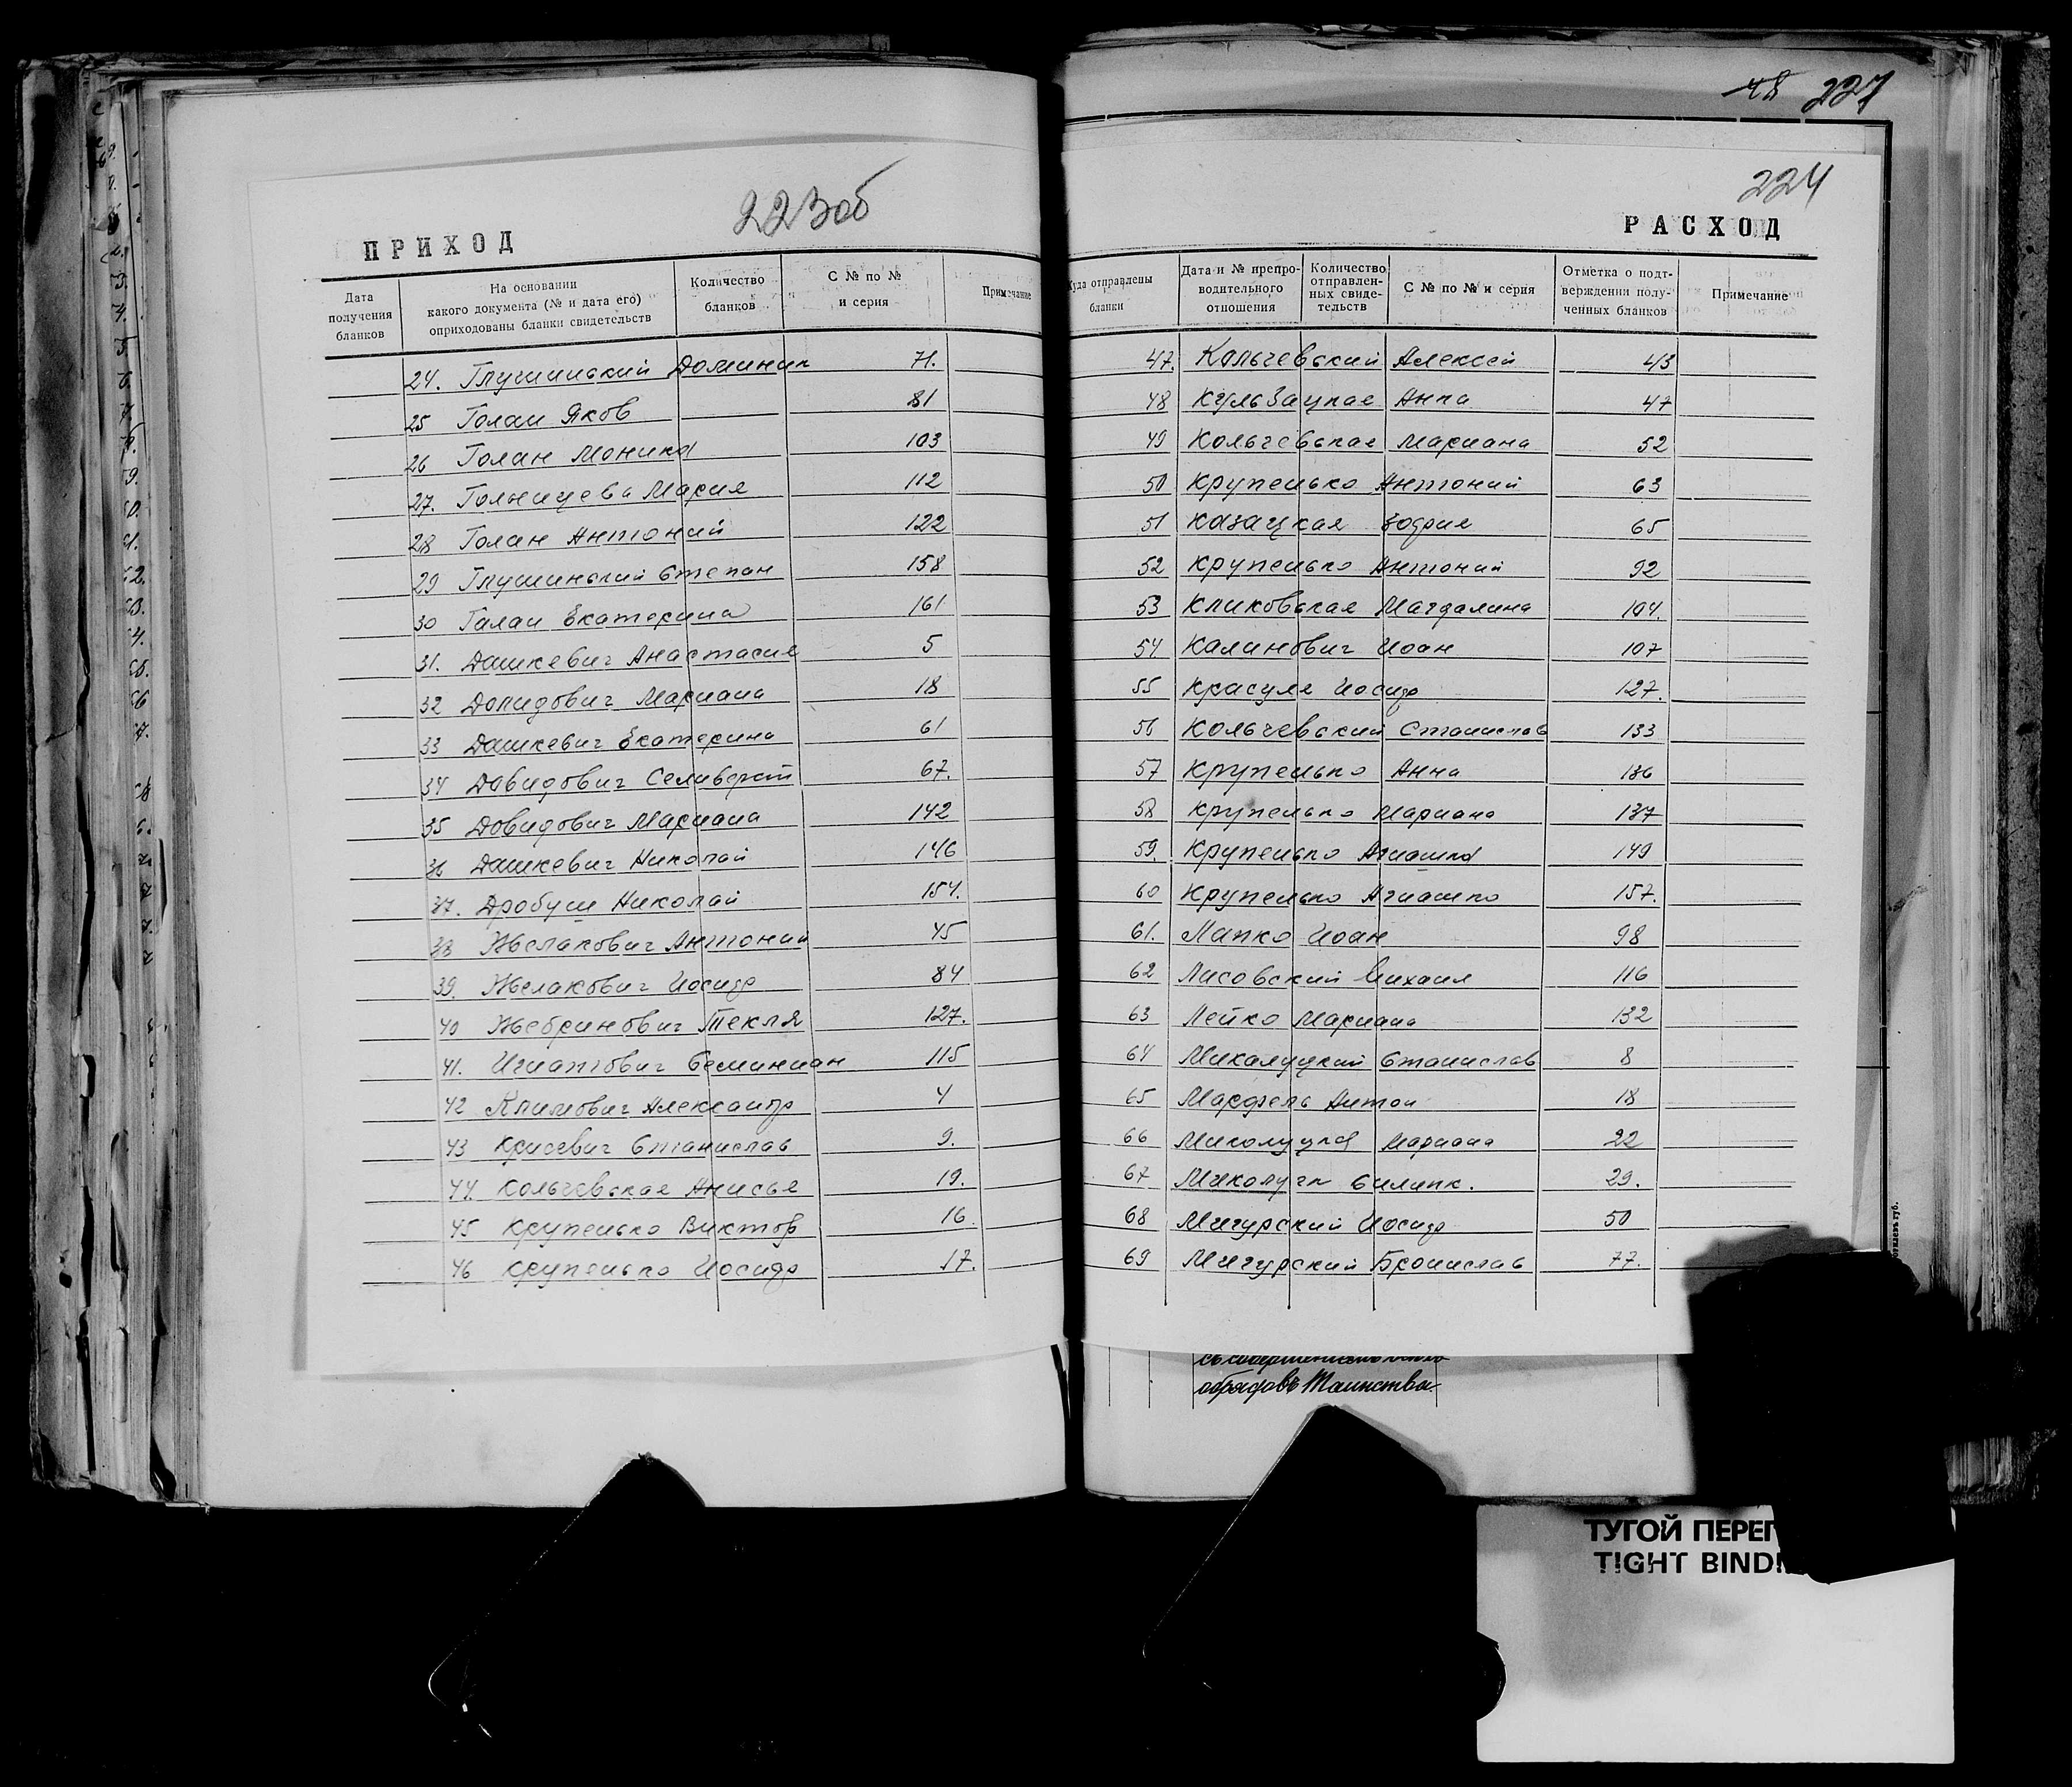 223об
ПРИХОД
Дата получения бланков
На основании какого документа (№ и дата его) оприходованы бланки свидетельств
Количество бланков
С № по № и серия
Примечание
24. Глушинский Доминик 71.
25 Голан Яков 81
26 Голан Моника 103
27. Голынцева Мария 112
28 Голан Антоний 122
29 Глушинский Степан 158
30 Галан Екатерина 161
31. Дашкевич Анастасия 5
32 Довидович Мариана 18
33 Дашкевич Екатерина 61
34 Довидович Селиверст 67.
35 Довидович Мариана 142
36 Дашкевич Николай 146
37. Дробуш Николай 154.
38 Жвелакович Антоний 45
39. Жвелакович Иосиф 84
40 Жебринович Текля 127.
41. Игнатович 115
42 Климович Александр 4
43 Крисевич Станислав 9.
44. Кольчевская Анисья 19.
45 Крупенько Виктор 16
46 Крупенько Иосиф 17.
48 227
224
РАСХОД
Куда отправлены бланки
Дата и № препроводительного отношения
Количество отправленных свидетельств
С № по № и серия
Отметка о подтверждении полученных бланков
Примечание
47. Кольчевский Алексей 43
48 Анна 47
49 Кольчевская Мариана 52
50 Крупенько Антоний 63
51 Казацкая Зофия 65
52 Крупенько Антоний 92
53 Климовская Магдалина 104.
54 Калинович Иоан 107
55 Красуля Иосиф 127.
56 Кольчевский Станислав 133
57 Крупенько Анна 136
58 Крупенько Мариана 137
59. Крупенько Агнашка 149
60 Крупенько Агнашко 157.
61. Лапко Иоан 98
62 Лисовский Михаил 116
63 Лейко Мариана 132
64 Микалуцкий Станислав 8
65 Марфель Антон 18
66 Мариана 22
67 29.
68 Мигурский Иосиф 50
69 Мигурский Бронислав 77.
обрядовъ Таинства.
ТУГОЙ ПЕРЕП
TIGHT BINDI